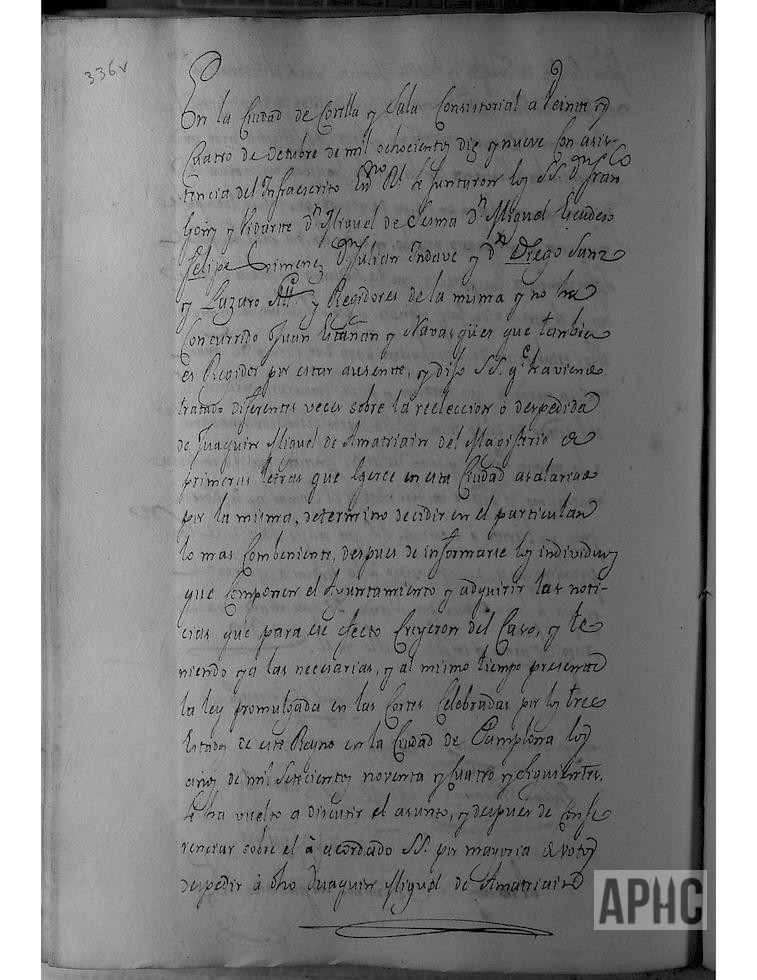 336.v
En la Ciudad de Corella y Sala Consistorial a veinte y
Quatro de Octubre de mil ochocientos diez y nueve con asis-
tencia del Infraescrito Esno Rl se Juntaron los SS. Dn Franco
Goñi y Vidarte Dn Miguel de Sesma Dn Miguel Escudero
Felipe Ximenez Dn Julian Yndave y Dn Diego Sanz
y Lazaro Alle. y Regidores de la misma y no ha
Concurrido Juan Estañan y Navasqües que tambien
es Regidor por estar ausente, y dijo SS. qe haviendo
tratado diferentes veces sobre la reeleccion ó despedida
de Juaquin Miguel de Amatriain del Magisterio de
primeras letras que egerce en esta Ciudad asalariado
por la misma, determino decidir en el particular
lo mas combeniente, despues de informarse los individuos
que Componen el Ayuntamiento y adquirir las noti-
cias que para ese efecto Creyeron del Caso, y te-
niendo ya las necesarias, y al mismo tiempo presente
la ley promulgada en las Cortes Celebradas por los tres
Estados de este Reyno en la Ciudad de Pamplona los
años de mil Setecientos noventa y Cuatro y siguientes.
Se ha vuelto a discutir el asunto, y despues de confe
renciar sobre el à acordado SS. por mayoria de votos
despedir à dho Juaquin Miguel de Amatriain
APHC